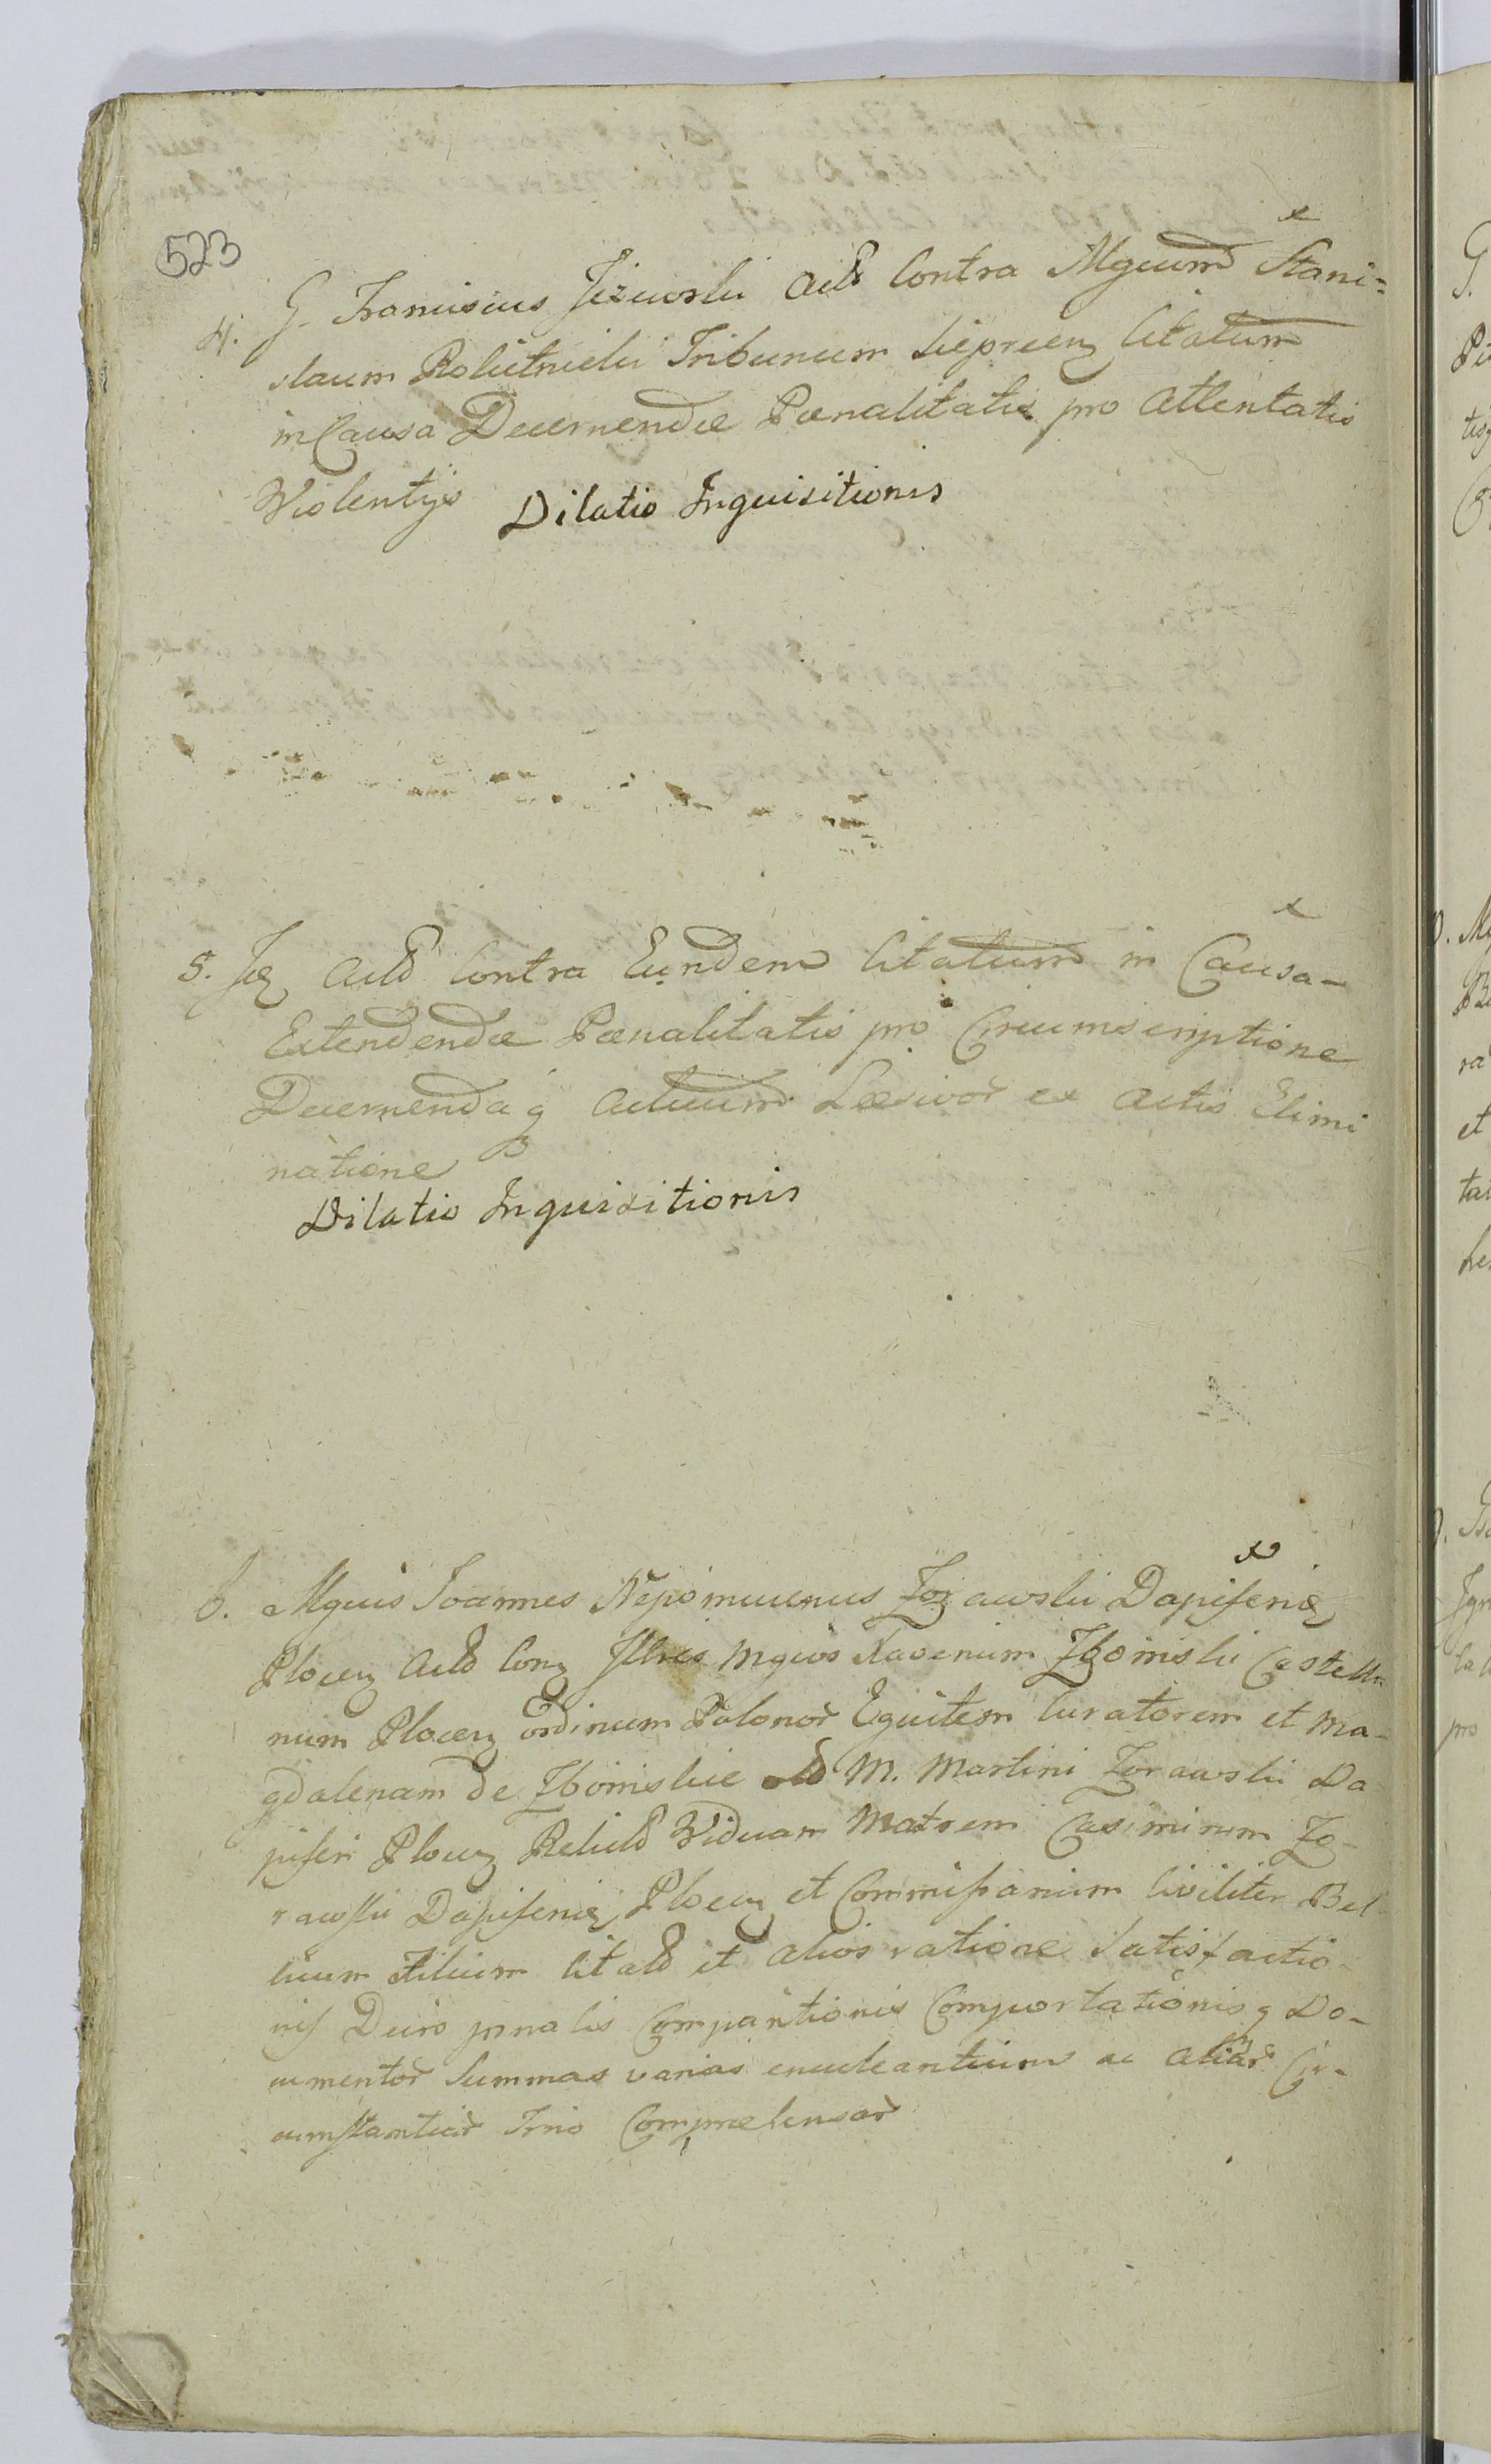 523
x
4. G. Franciscus Jezewski Actd Contra Mgcum Stani=
slaum Rokitnicki Tribunum Siepreeng Citatum
in Causa Decernendæ Pœnalitatis pro attentatis
Violentijs Dilatio Inquisitionis
x
5. Actd Contra Eundem Citatum in Causa-
Extendendæ Pœnalitatis pro Circumscriptione
Decernendaq actuum Læsivor ex actis Elimi
natione
Dilatio Inquisitionis
x
6. Mgcus Joannes Nepomucenus Zorawski Dapiferid
Plocen Actd Con Illres Mgcos Xaverium Zboinski Castella
num Plocen ordinum Polonor Equitem Curatorem et Ma-
gdalenam de Zboinskie M. Martini Zorawski Da
piferi Plocen Relictd Viduam Matrem Casimirum Zo-
rawski Dapiferid Plocen et Commissarium Civiliter Bel
licum Filium Citatd et alios ratione Satisfactio-
nis Decro Compartionis Comportationisq Do-
cumentor Summas varias enucleantium ac aliar Cir-
cumstantiar Trio Comprælensar